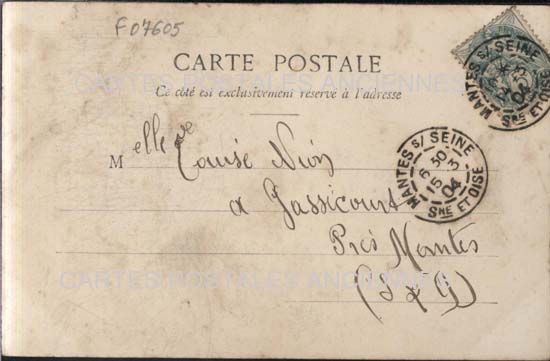 F07605
CARTE POSTALE
CARTES POSTALES ANCIENNES
Ce côté est exclusivement réservé à l'adresse
MANTES S/ SEINE
04
SNE ET OISE
MANTES S/ SEINE
6 30
15 3
04
SNE ET OISE
Melle Louise
a Gassicourt
Près Mantes
CARTES POSTALES ANCIENNES
(S & O)